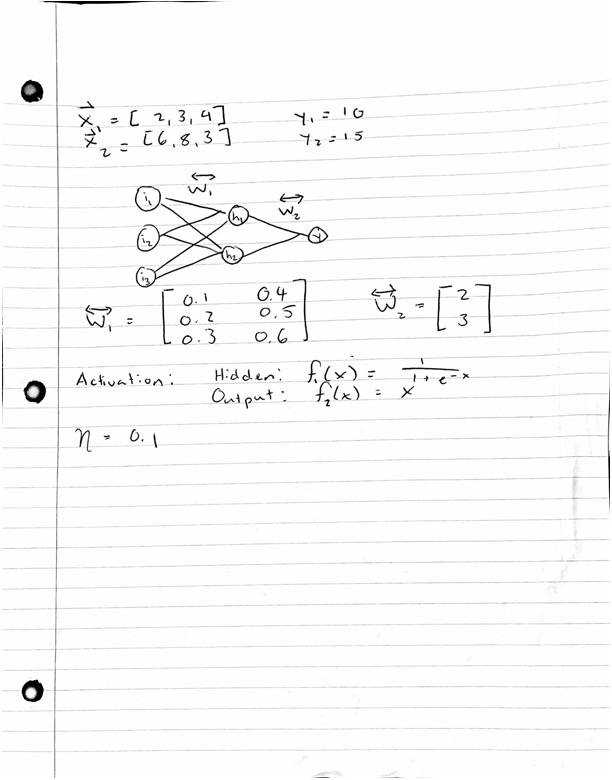 x⃗₁ = [ 2, 3, 4 ] y₁ = 10
x⃗₂ = [6, 8, 3 ] y₂ = 15
W₁ W₂
i₁ h₁
i₂ h₂ y
i₃
W₁ = [ 0.1 0.4 W₂ = [ 2
0.2 0.5 3 ]
0.3 0.6 ]
Activation: Hidden: f₁(x) = 1 / (1 + e⁻ˣ)
Output: f₂(x) = x
η = 0.1